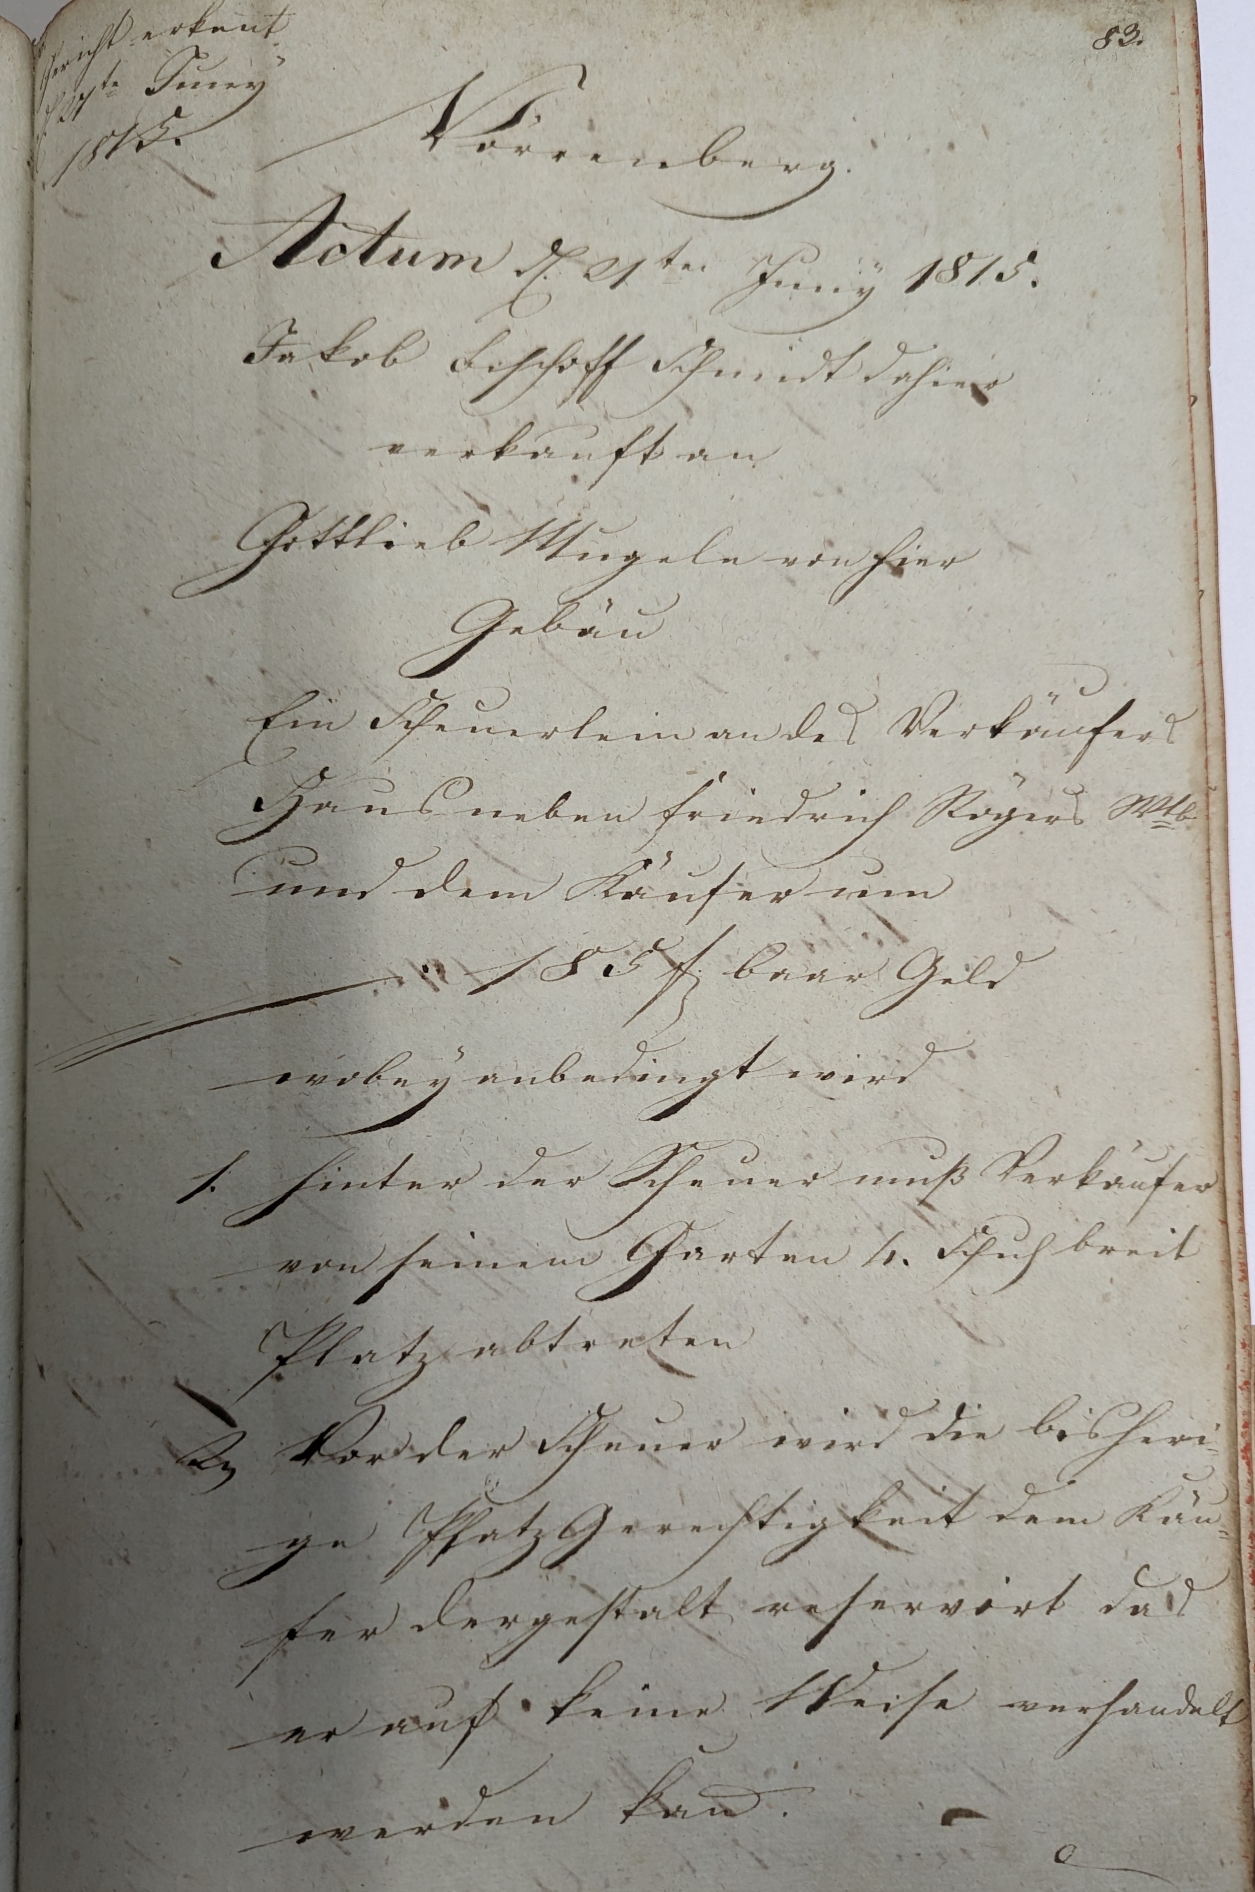 83.
Gericht erkent
d. 27te Juny
1815.
Dörrenberg.
Actum d. 21ten Juny 1815.
Jakob Bischoff Schmidt dahier
verkauft an
Gottlieb Mugele von hier
Gebäu
Ein Scheuerlein an des Verkäufers
Haus neben Friedrich Rögers Wtb
und dem Käufer um
185 f. baar Geld
wobey anbedingt wird
1. hinter der Scheuer muß Verkäufer
von seinem Garten 4. Schuh breit
Platz abtreten
2. Vor der Scheuer wird die bisheri-
ge Platz Gerechtigkeit dem Käu-
fer dergestalt reservirt das
er auf keine Weise verhandelt
werden kan.